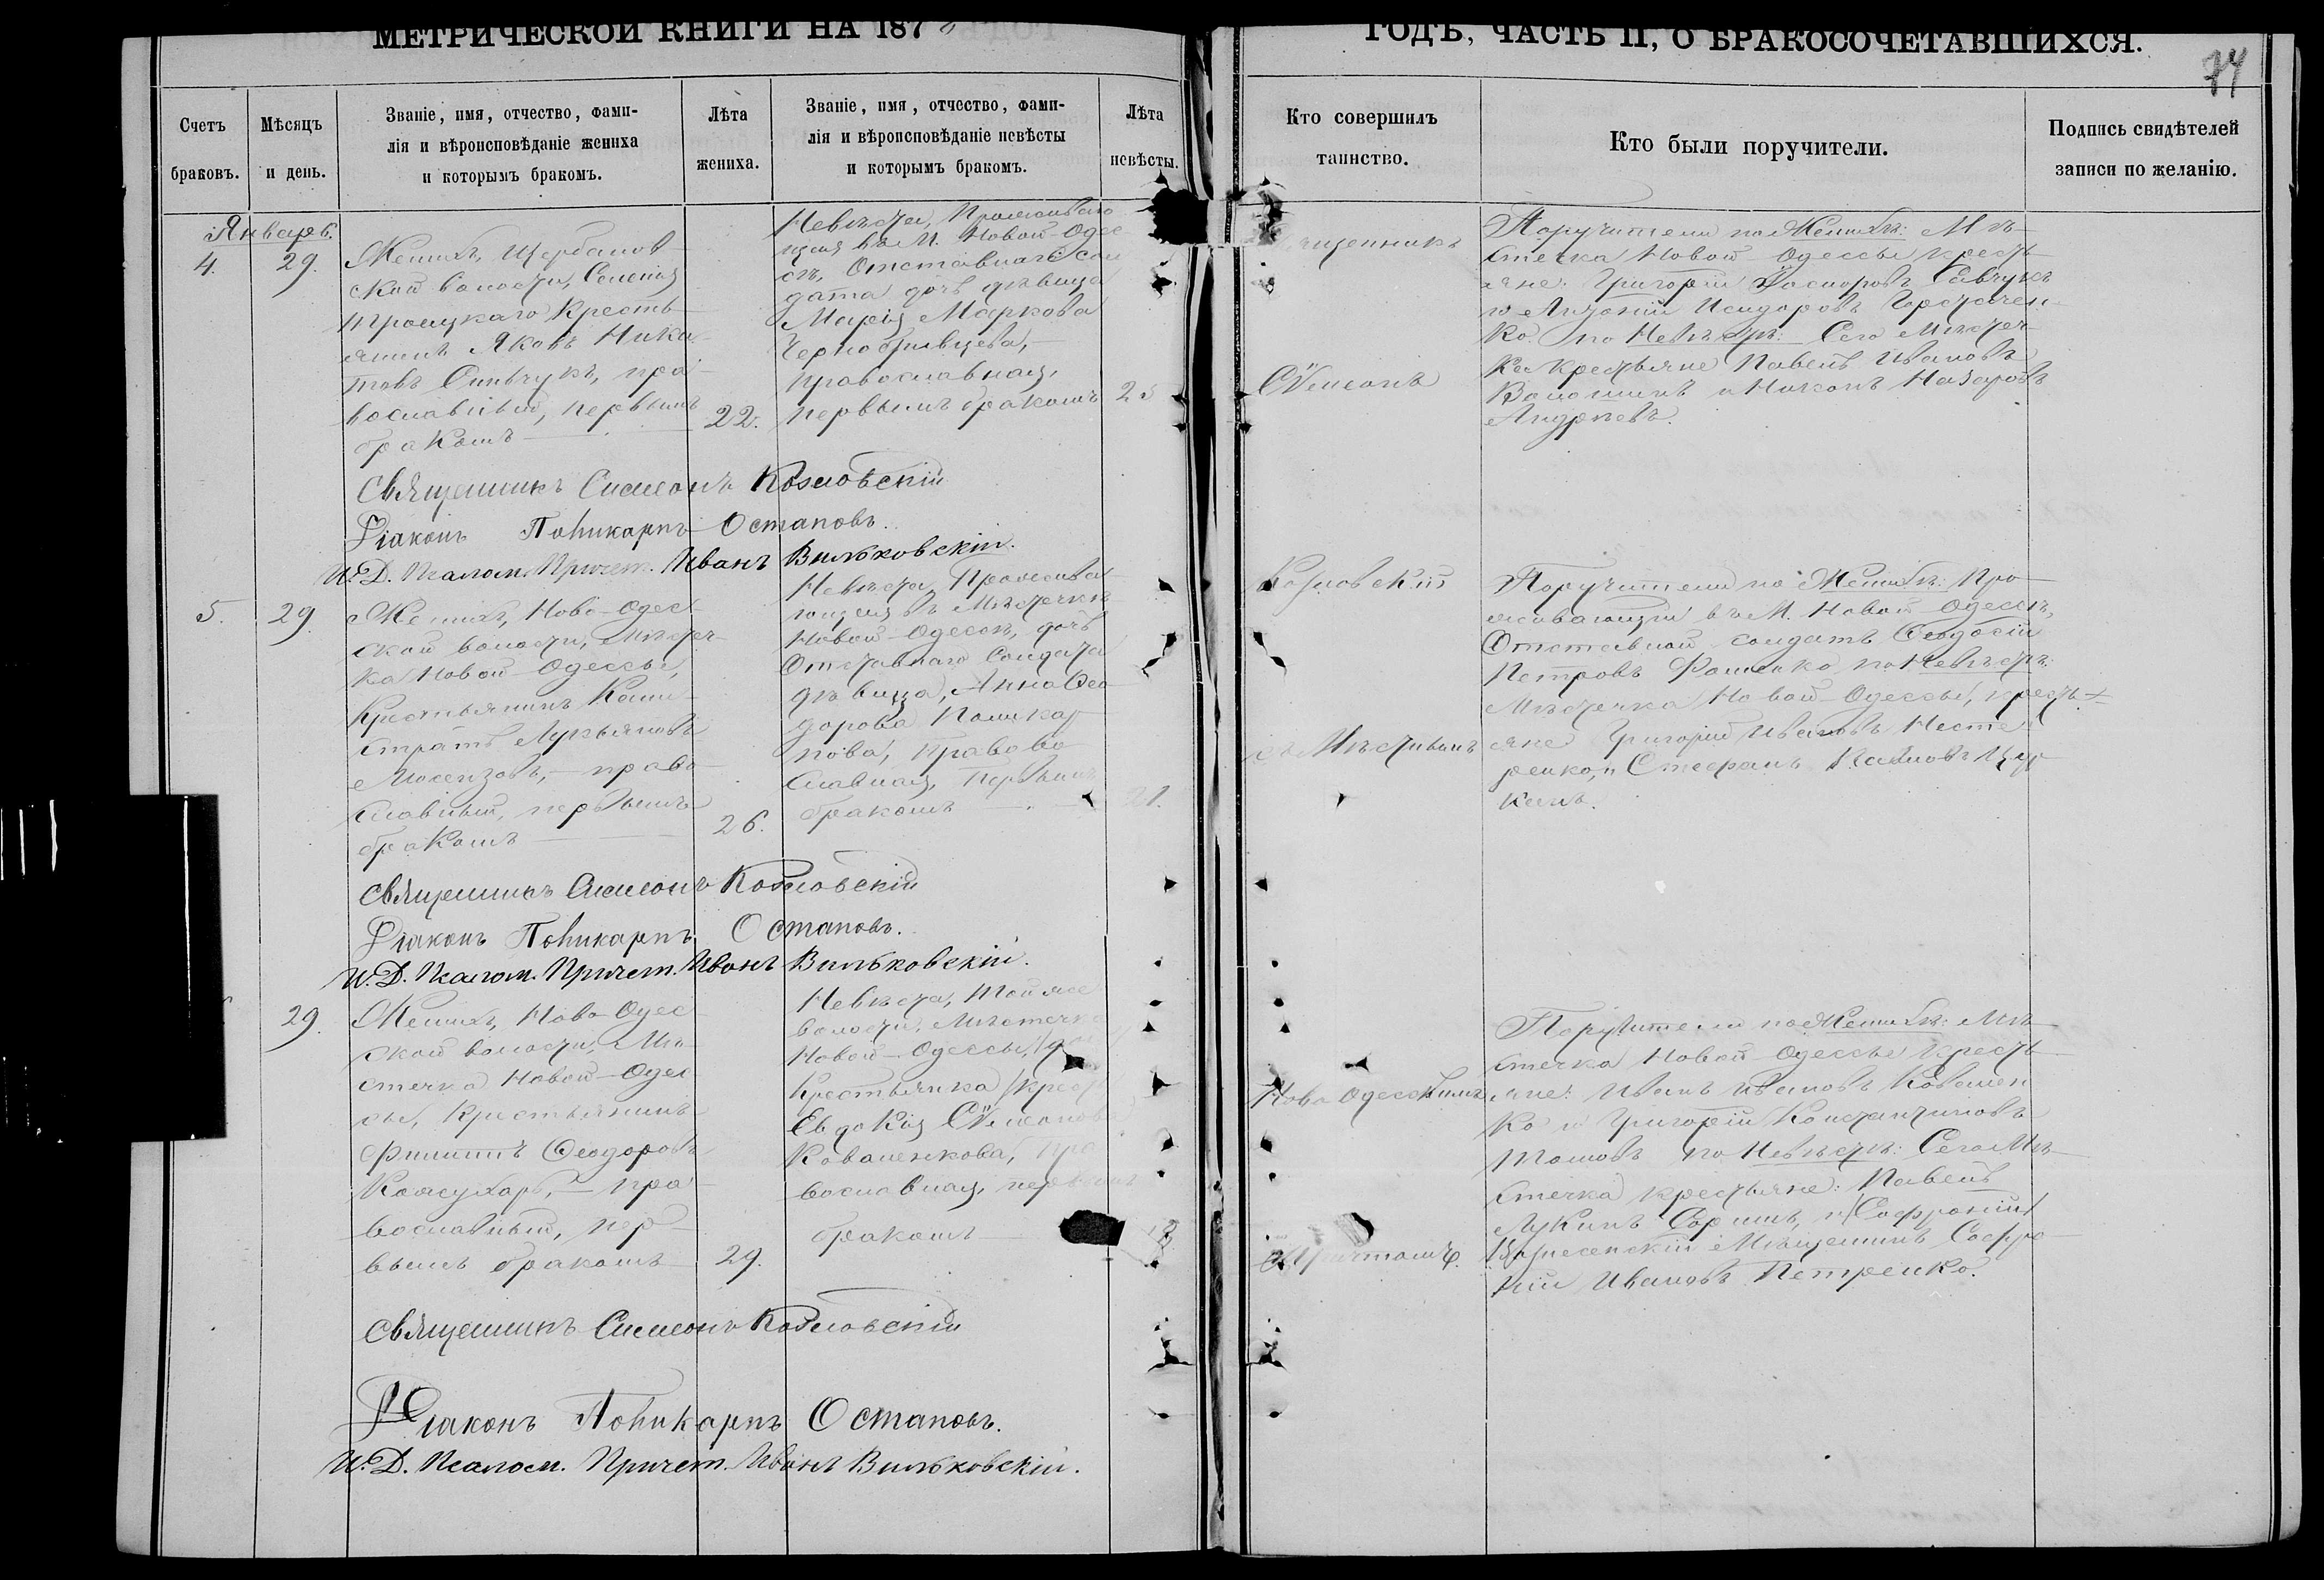 МЕТРИЧЕСКОЙ КНИГИ НА 187
ГОДЪ, ЧАСТЬ II, О БРАКОСОЧЕТАВШИХСЯ.
74
Счетъ
браковъ.
Мѣсяцъ
и день.
Званіе, имя, отчество, фами-
лія и вѣроисповѣданіе жениха
и которымъ бракомъ.
Лѣта
жениха.
Званіе, имя, отчество, фами-
лія и вѣроисповѣданіе невѣсты
и которымъ бракомъ.
Лѣта
невѣсты.
Кто совершилъ
таинство.
Кто были поручители.
Подпись свидѣтелей
записи по желанію.
Январь.
4.
29.
Женихъ, Щербанов
ской волости, Селенія
Троицкаго Кресть
янинъ Яковъ Ники
товъ Синьчукъ, пра
вославный, первымъ
бракомъ
22.
Невѣста, Проживаю
щая въ М. Новой-Одес
сѣ, Отставнаго Сол
дата дочь дѣвица
Марія Маркова
Чернобривцева,
православная,
первымъ бракомъ
Поручители по Женихѣ: Мѣ
стечка Новой Одессы кресть
яне: Григорій Савчукъ
и Исидоровъ
ко. по Невѣстѣ: Сего Мѣстеч
ка крестьяне Павелъ Ивановъ
Волошинъ и Никонъ Назаровъ
Андреевъ.
Священникъ Симеонъ Козловскій
Діаконъ Поликарпъ Остаповъ.
И. Д. Псалом. Причет. Иванъ Вильковскій.
5.
29.
Женихъ, Ново-Одес
ской волости, Мѣстеч
ка Новой-Одессы,
Крестьянинъ Кали
стратъ Лукьяновъ
право
славный, первымъ
бракомъ
26.
Невѣста, Прожива
ющая въ Мѣстечкѣ
Новой-Одессѣ, дочь
Отставнаго Солдата
дѣвица, Анна Ѳео
дорова Поликар
пова, Право
славная, первымъ
бракомъ
21.
Поручители по Женихѣ: Про
живающій въ М. Новой-Одессѣ,
Отставной солдатъ Ѳеодосій
Петровъ Фоменко по Невѣстѣ:
Мѣстечка Новой-Одессы, кресть
яне Григорій Ивановъ Несте
ренко, и Стефанъ
канъ.
Священникъ Симеонъ Козловскій
Діаконъ Поликарпъ Остаповъ.
И. Д. Псалом. Причет. Иванъ Вильковскій.
29.
Женихъ, Ново-Одес
ской волости, Мѣ
стечка Новой-Одес
сы, Крестьянинъ
Филиппъ Ѳеодоровъ
Кожухарь, пра
вославный, пер
вымъ бракомъ
29.
Невѣста, Той же
волости, Мѣстечка
Новой-Одессы,
Крестьянка
Евдокія Сѵмеонова
Коваленкова, пра
вославная, первымъ
бракомъ
Поручители по Женихѣ: Мѣ
стечка Новой-Одессы кресть
яне: Иванъ Ивановъ Ковален
ко и Григорій Константиновъ
Томовъ по Невѣстѣ: Сего Мѣ
стечка крестьяне: Павелъ
Лукинъ и
Вознесенскій Мѣщанинъ Софро
ній Ивановъ Петренко.
Священникъ
Сѵмеонъ
Козловскій
съ Мѣстнымъ
Ново Одесскимъ
Причтомъ.
Священникъ Симеонъ Козловскій
Діаконъ Поликарпъ Остаповъ.
И. Д. Псалом. Причет. Иванъ Вильковскій.